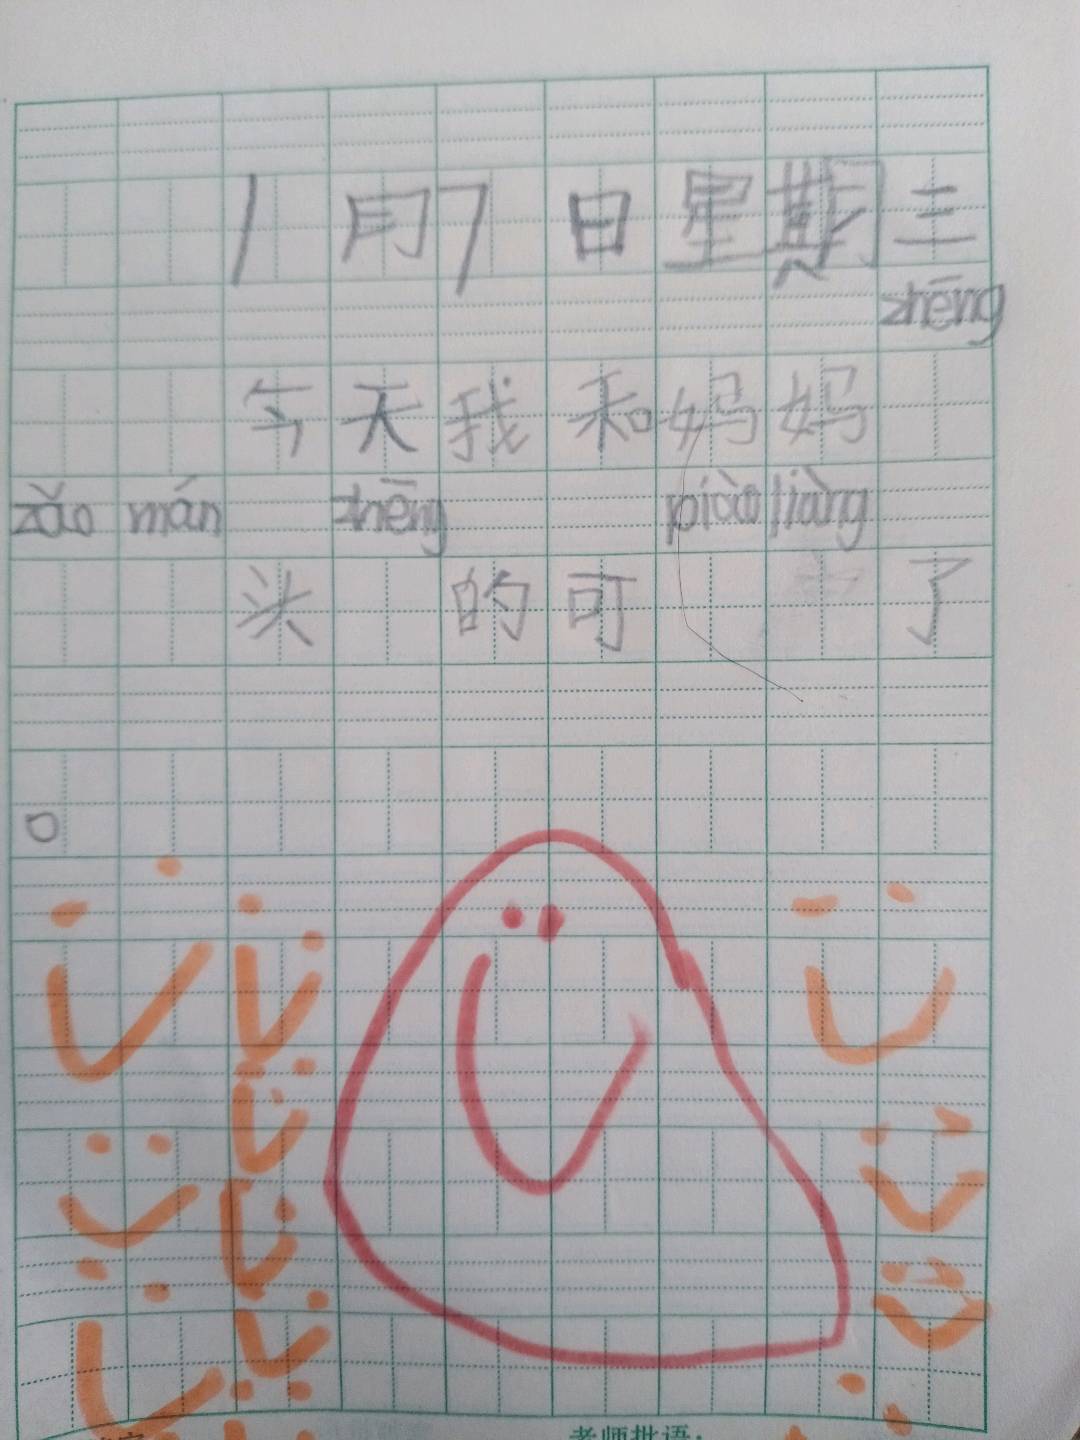 1月7日星期三
zhēng
今天我和妈妈
zǎo mán zhēng piào liàng
头的可了
。
老师批语: